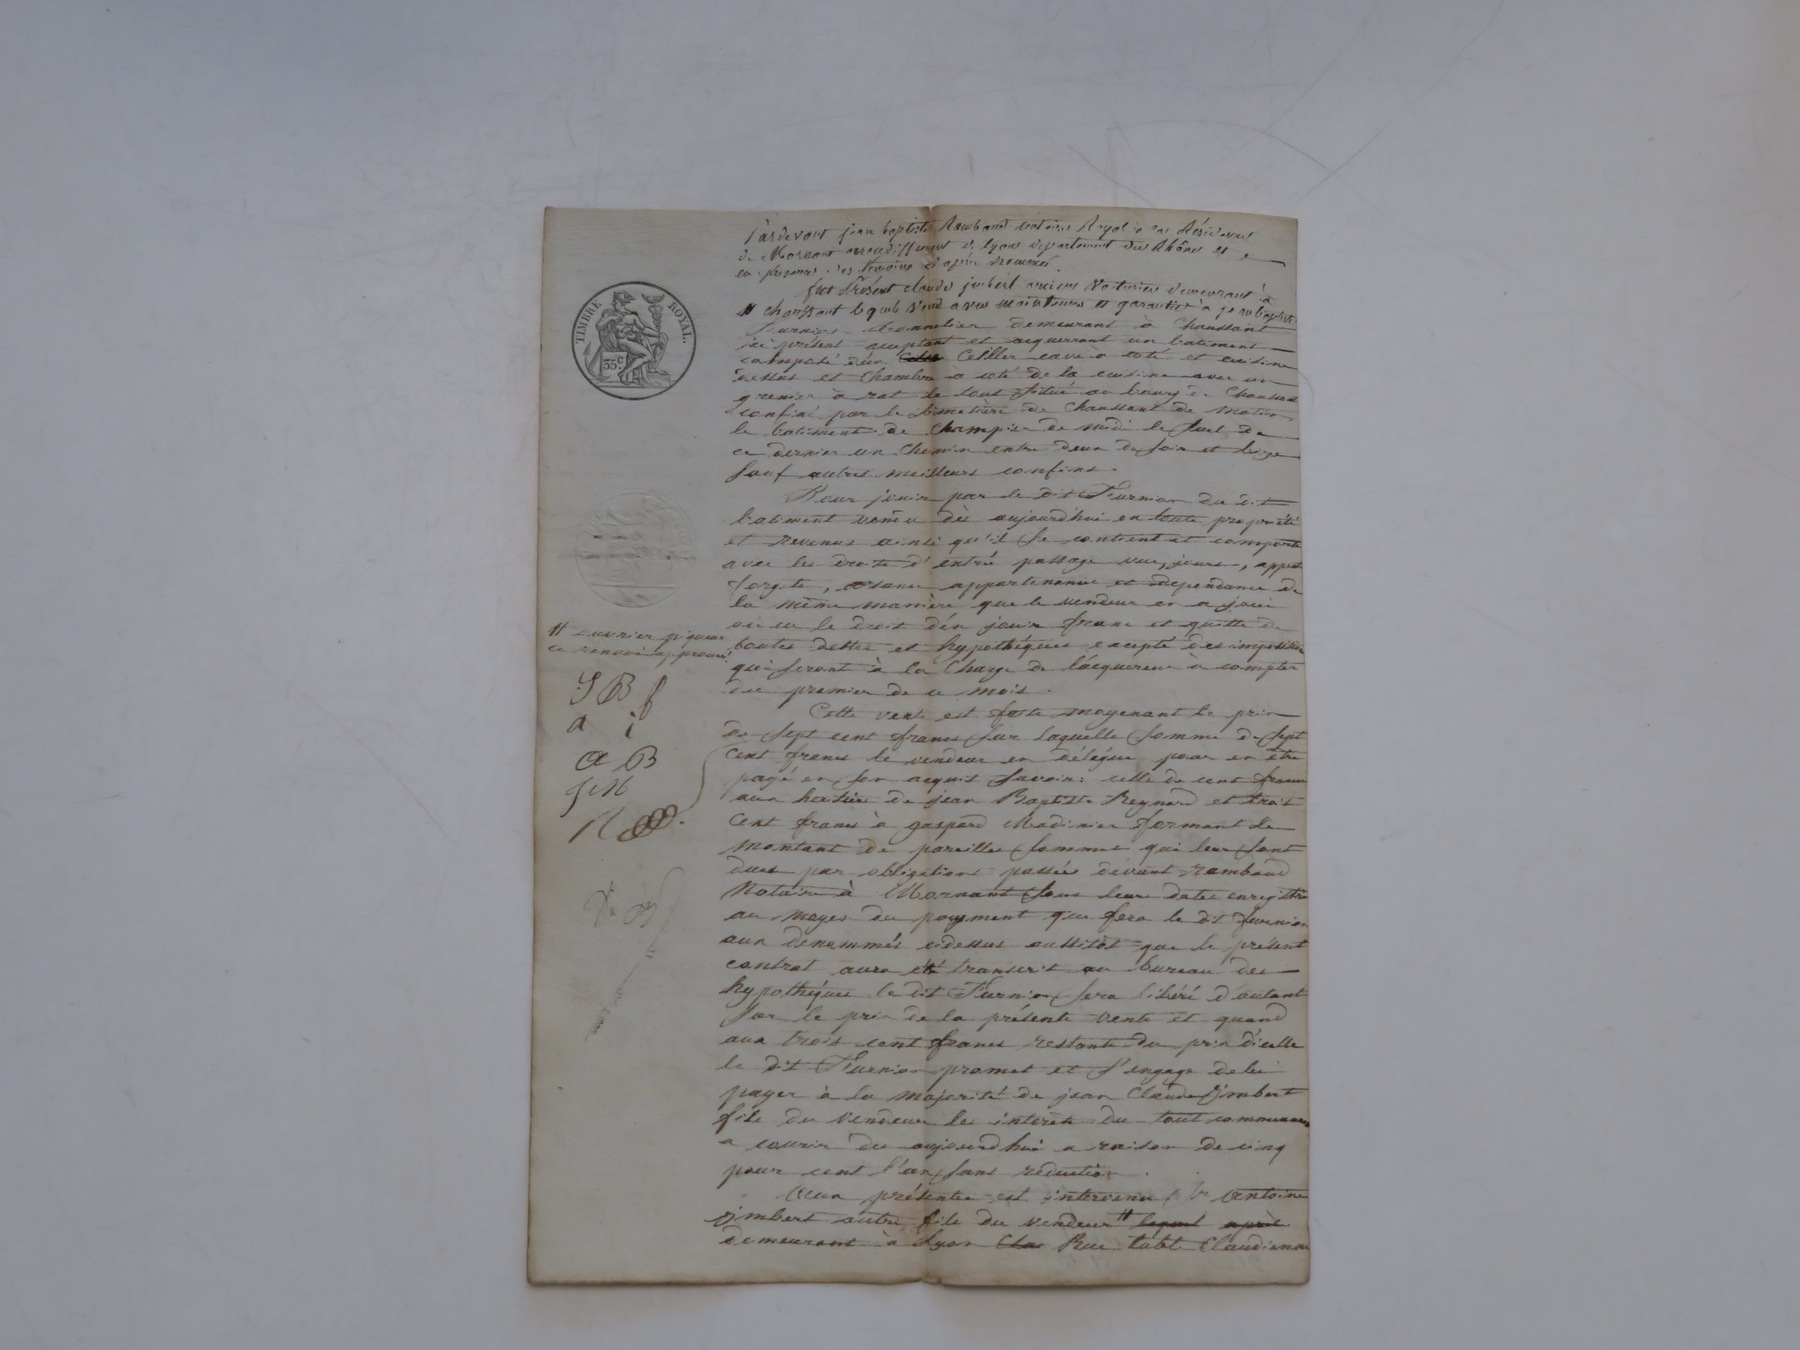 Pardevant jean baptiste Rambaud notaire Royal à la Résidence
de Mornant arrondissement de Lyon département du Rhône et
en présence des témoins ci après nommés.
fut Présent claude jmbert ancien Voiturier demeurant à
chaussant lequel vend avec maintenue et garantie à jean baptiste
Furnion demeurant à Chaussant
ici présent acceptant et acquerrant un batiment
composé d'un Cellier cave à coté et cuisine
dessus et Chambre à coté de la cuisine avec un
grenier à rat le tout situé au bourg de Chaussant
confiné par le cimetière de Chaussant de matin
le batiment de Champier de midi le suel de
ce dernier un Chemin entre deux de soir et bize
sauf autres meilleurs confins.
Pour jouir par le dit Furnion du dit
batiment vendu dès aujourd'hui en toute propriété
et revenus ainsi qu'il se contient et comporte
avec les droits d'entrée passage vue, jours,
aisance appartenance et dépendance de
la même manière que le vendeur en a joui
ou eu le droit d'en jouir franc et quitte de
toutes dettes et hypothéques excepté des impositions
qui seront à la Charge de l'acquereur à compter
du premier de ce mois.
Cette vente est faite moyenant le prix
de sept cent francs sur laquelle somme de sept
cent francs le vendeur en délégue pour en être
payé en son acquit savoir: celle de cent francs
aux heritiers de jean Baptiste Reynard et trois
cent francs à gaspard Madinier formant le
montant de pareilles sommes qui leur sont
dues par obligations passées devant rambaud
Notaire à Mornant sous leurs dates enregistrées
au moyen du payement que fera le dit furnion
aux dénommés cidessus aussitôt que le présent
contrat aura été transcrit au bureau des
hypothéques le dit Furnion sera libéré d'autant
sur le prix de la présente vente et quand
aux trois cent francs restants du prix d'icelle
le dit Furnion promet et s'engage de les
payer à la majorité de jean Claude jmbert
fils du vendeur les intérêts du tout commencera
a courir du aujourd'hui a raison de cinq
pour cent l'an sans réduction.
Aux présentes est intervenu Antoine
jmbert autre fils du vendeur # lequel après
demeurant à Lyon Rue Claudienne
TIMBRE ROYAL.
35 c.
# ouvrier
ce renvoi approuvé
J B f
a i
a B